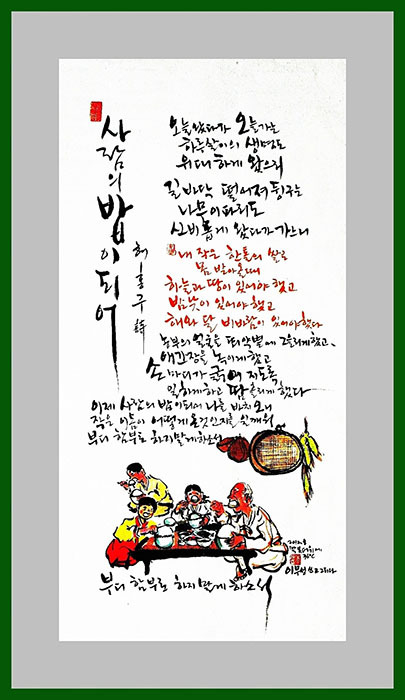 사람의 밥이 되어
허홍구 詩
오늘 왔다가 오늘 가는
하루살이의 생명도
위대하게 왔으리
길바닥 떨어져 뒹구는
나무이파리도
신비롭게 왔다가 가느니
내 작은 한톨의 쌀로
몸 받아올때
하늘과 땅이 있어야 했고
밤낮이 있어야 했고
해와 달 비바람이 있어야 했다
농부의 얼굴을 땡악볕에 그을리게 했고,
애간장을 녹이게 했고
손마디가 굵어 지도록
일하게하고 땀 흘리게 했다
이제 사람의 밥이되어 나를 바치오니
작은 이놈이 어떻게 온것인지를 일깨워
부디 함부로 하지말게 하소서
이무성
부디 함부로 하지 말게 하소서